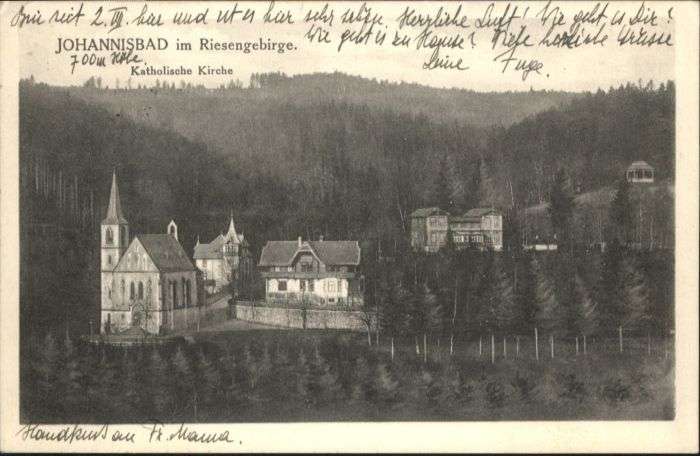 Bin seit 2. III. hier und ist es hier sehr schön. Herrliche Luft! Wie geht es Dir?
Wie geht es zu Hause? Viele herzliche Grüsse
JOHANNISBAD im Riesengebirge.
700m Höhe.
Deine
Katholische Kirche
Handkuss an Fr. Mama.